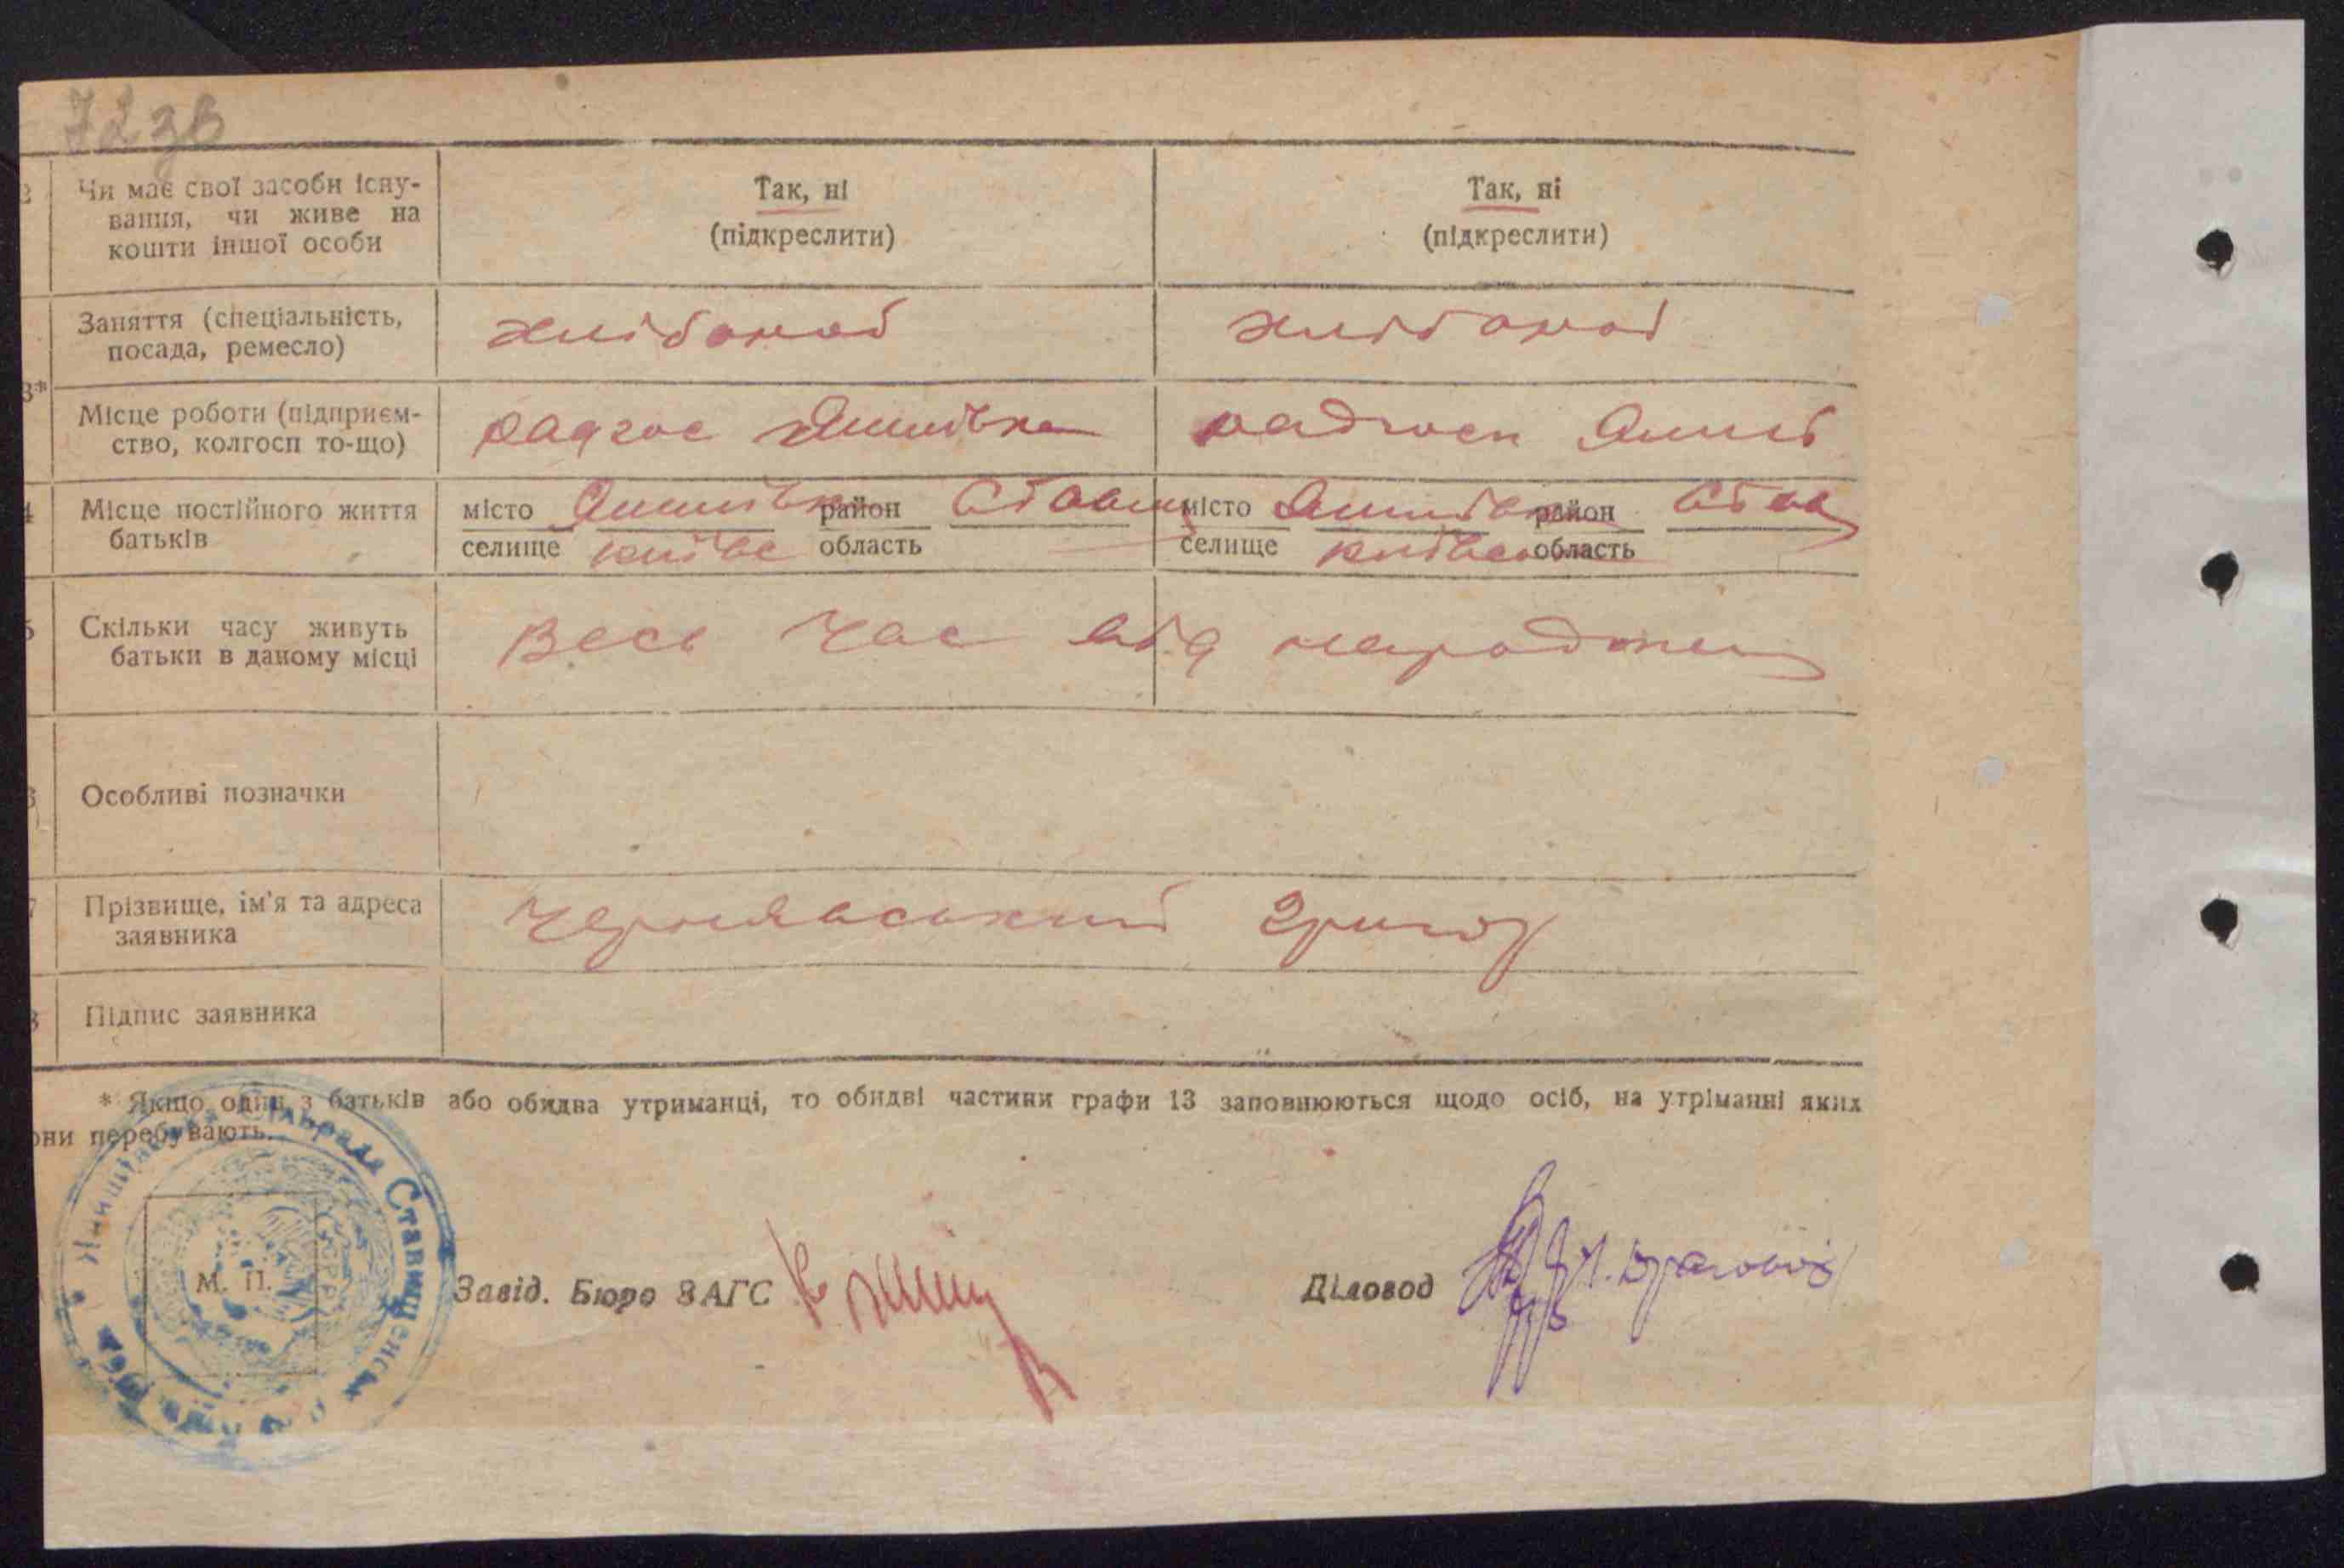 72зв
2 Чи має свої засоби існу-
вання, чи живе на
кошти іншої особи
Так, ні
(підкреслити)
Так, ні
(підкреслити)
3*
Заняття (спеціальність,
посада, ремесло)
хлібороб
хлібороб
Місце роботи (підприєм-
ство, колгосп то-що)
радгос Янишівка
радгосп Янишів
4 Місце постійного життя
батьків
місто Янишівка район Стави
селище київс область
місто Янишівка район Став
селище київської область
5 Скільки часу живуть
батьки в даному місці
Весь час від народжен
6 Особливі позначки
7 Прізвище, ім'я та адреса
заявника
Чернявський Григор
8 Підпис заявника
* Якщо один з батьків або обидва утриманці, то обидві частини графи 13 заповнюються щодо осіб, на утріманні яких
они перебувають.
Янишівська сільрада Ставищенськ
М. П.
Завід. Бюро ЗАГС
Діловод